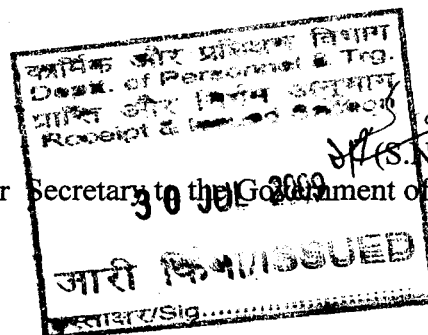 कार्मिक और प्रशिक्षण विभाग
Deptt. of Personnel & Trg.
प्राप्ति और निर्गम अनुभाग
Receipt &
(S.N
r Secretary to the Government of
30 JUL 2009
जारी किया/ISSUED
हस्ताक्षर/Sig..................